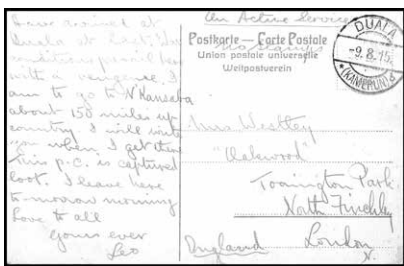 Have arrived at
Duala at last. War
conditions prevail here
with a vengence. I
am to go to N'Kanseba
about 150 miles up
country I will write
you when I get there
This p.c. is captured
loot. I leave here
to-morrow morning
Love to all
Yours ever
Leo
On Active Service
Postkarte — Carte Postale
No stamps
Union postale universelle
Weltpostverein
DUALA
-9.8.15.
(KAMERUN)
Mrs Westley
"Oakwood"
Torrington Park.
North Finchley
London
N.
England